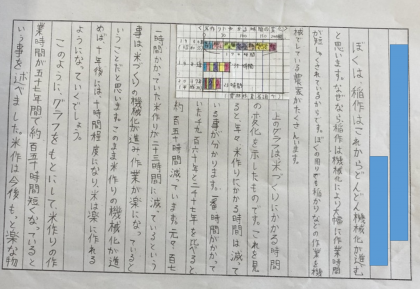 ぼくは稲作はこれからどんどん機械化が進む
と思います。なぜなら稲作は機械化により大幅に作業時間
が短くされているからです。ぼくの周りでも稲かりなどの作業を機
械でしている農家がたくさんいます。
上のグラフは米づくりにかかる時間
の変化を示したものです。これを見
ると、年々米作りにかかる時間は減って
いる事が分かります。一番時間がかかって
いた千九百六十年と二千十七年を比べると
約百五十時間減っています。元々百七
十時間かかっていた米作りが二十三時間に減っているという
事は米づくりの機械化が進み作業が楽になっていると
いうことだと思います。このまま米作りの機械化が進
めば、十年後には十時間程度になり、米は楽に作れる
ようになっていくでしょう。
このように、グラフをもとにして米作りの作
業時間が五十七年間で約百五十時間短くなっていると
いう事を述べました。米作は今後もっと楽な物